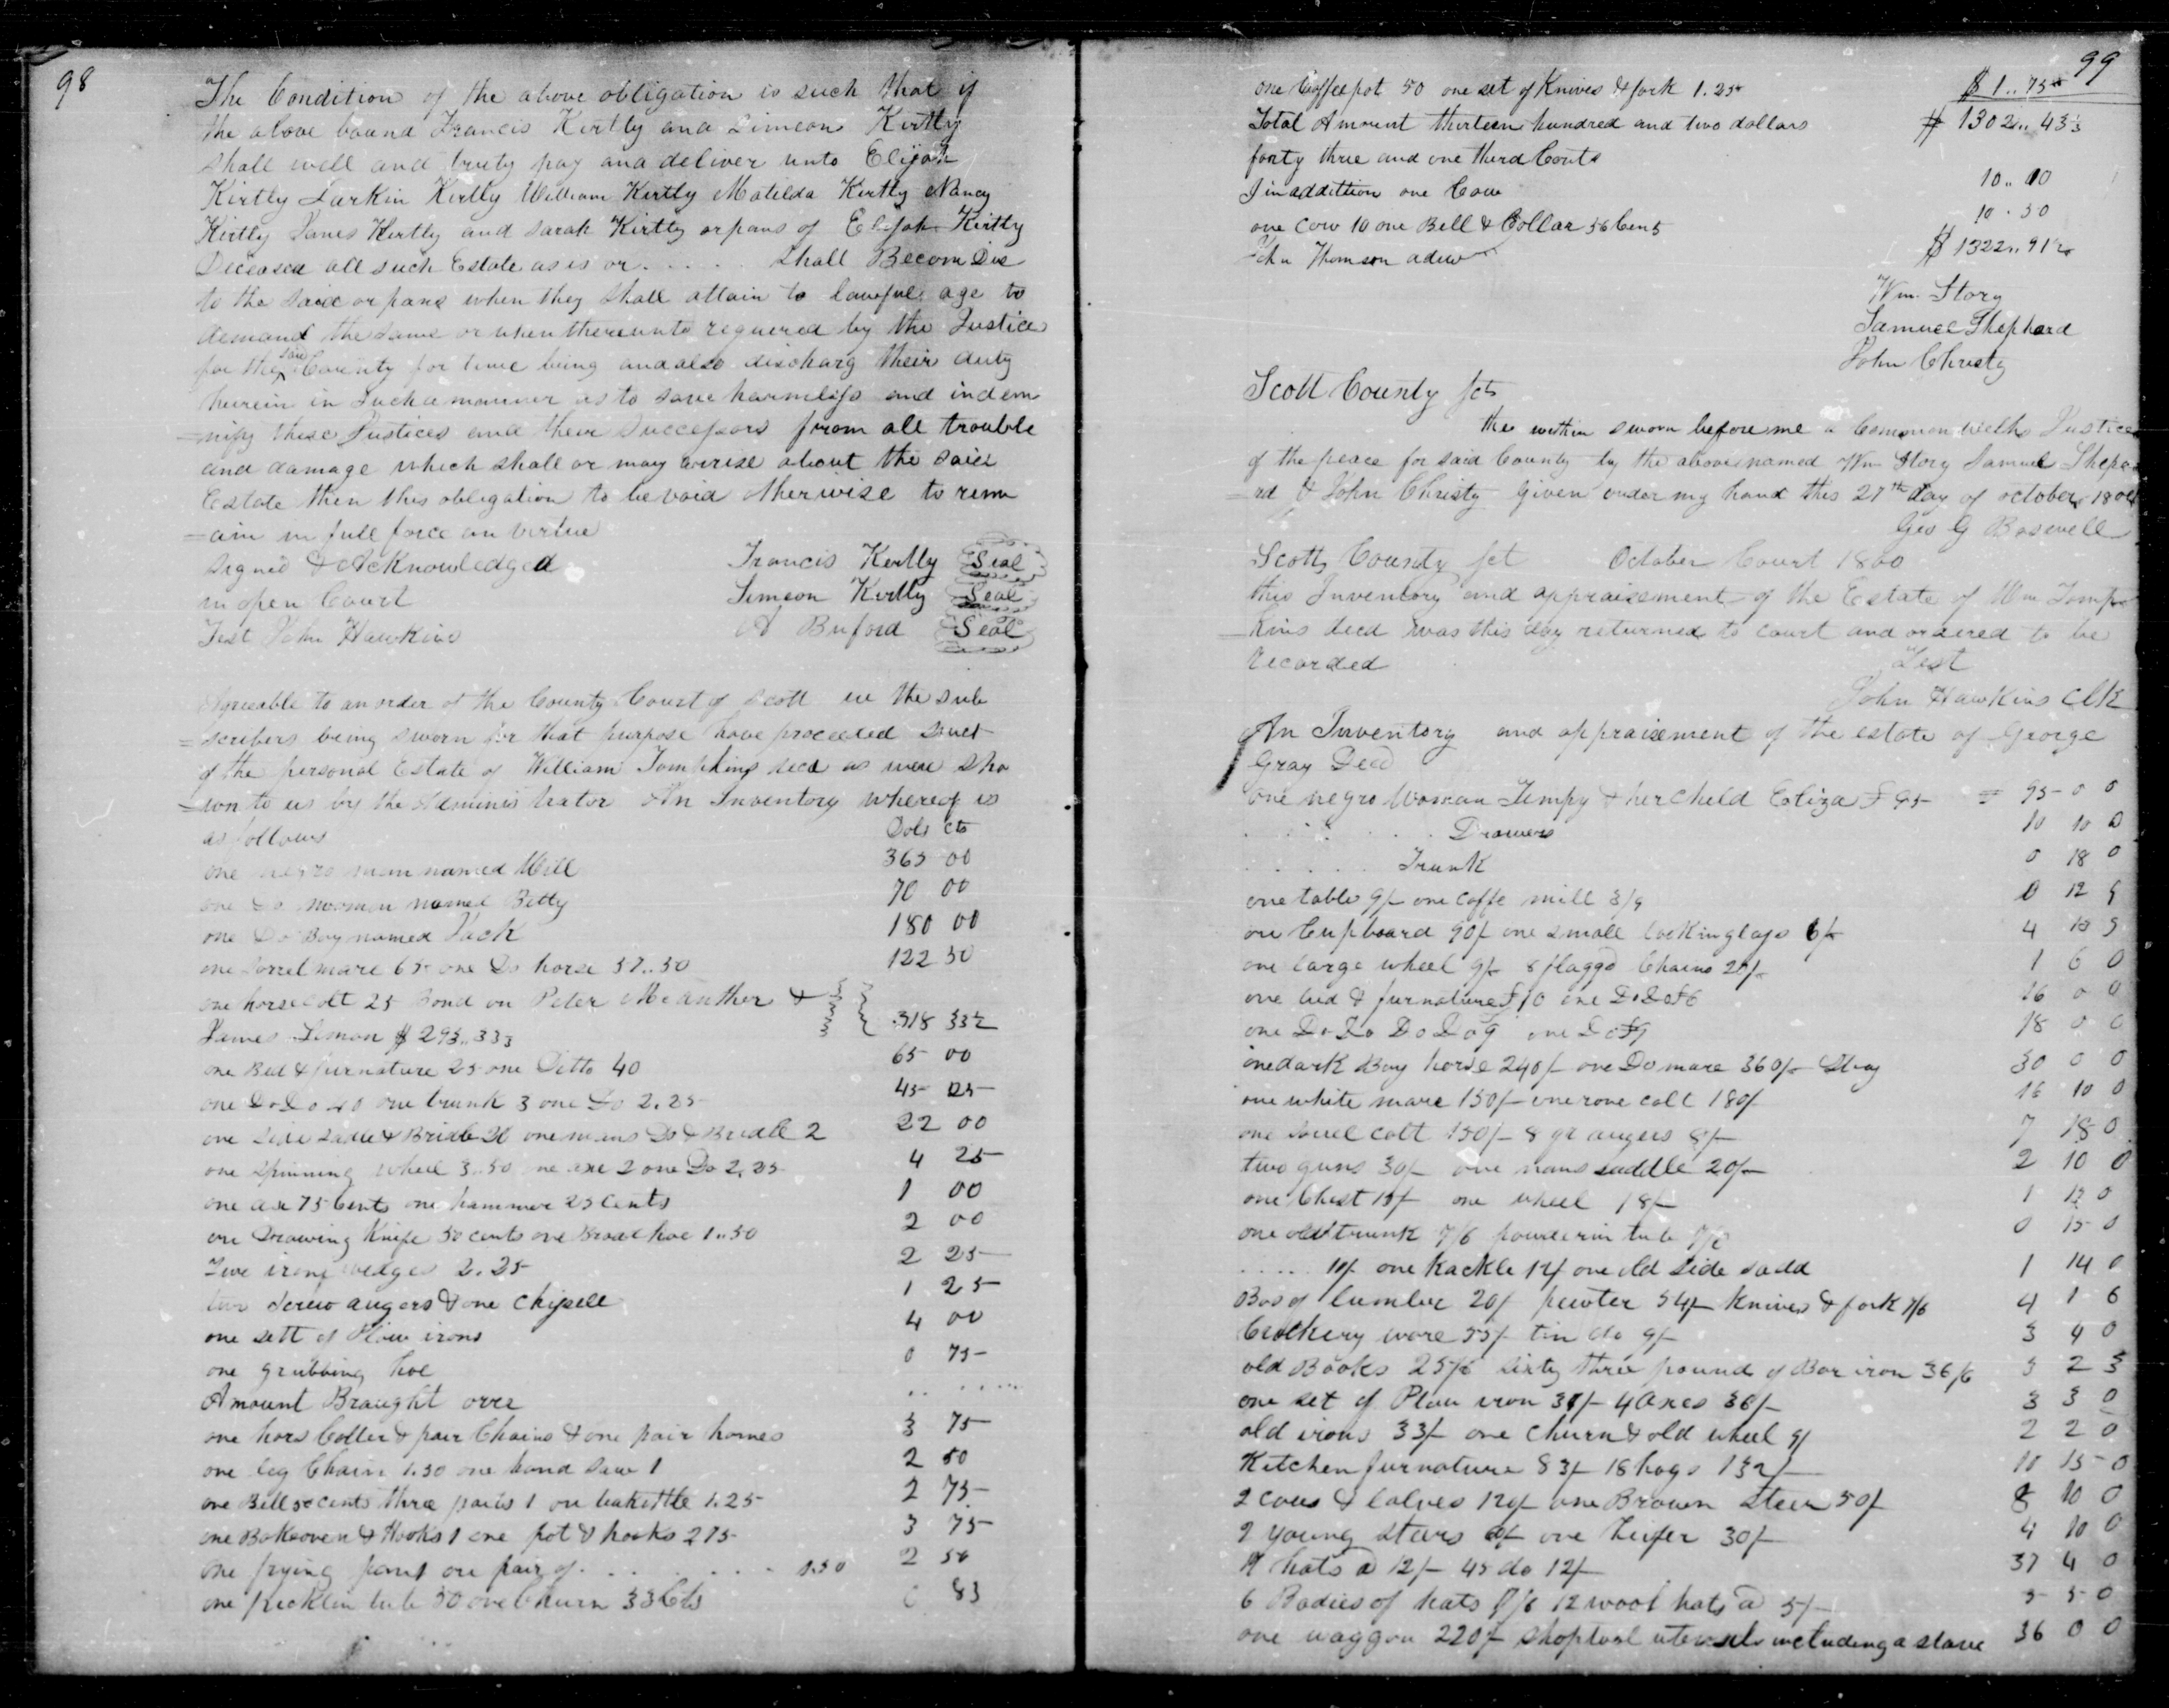 98
The Condition of the above obligation is such that if
the above bound Francis Kirtly and Simeon Kirtly
shall well and truly pay and deliver unto Elijah
Kirtly Larkin Kirtly William Kirtly Matilda Kirtly Nancy
Kirtly James Kirtly and Sarah Kirtly orpans of Elijah Kirtly
Diceased all such Estate as is or . . . . . shall Becom Due
to the said orpans when they shall attain to lawful age to
demand the same or when thereunto requered by the Justice
for the said County for time being and also discharg their duty
herein in such a manner as to save harmless and indem
=nify these Justices and their Successors from all trouble
and damage which shall or may arrise about the said
Estate then this obligation to be void otherwise to rem
=ain in full force an virtue
Signed & Acknowledged Francis Kertly Seal
in open Court Simeon Kertly Seal
Test John Hawkins A Buford Seal
Agreeable to an order of the County Court of Scott we the sub
=scribers being sworn for that purpose have proceeded
of the personal Estate of William Tompkins decd as were sho
=wn to us by the Administrator An Inventory whereof is
as follows Dols cts
one negro man named Will 365 00
one Do woman named Betty 70 00
one Do Boy named Jack 180 00
one sorrel mare 65 one Do horse 57..50 122 50
one horse colt 25 Bond on Peter &
James Lemon $ 293..33 318 33
one Bed & furnature 25 one Ditto 40 65 00
one Do Do 40 one trunk 3 one Do 2.25 45 25
one side sadle & Bridle 20 one mans Do & Bridle 2 22 00
one spinning wheel 3..50 one axe 2 one Do 2.25 4 25
one axe 75 Cents one hammer 25 Cents 1 00
one Drawing Knife 50 cents one Broad hoe 1..50 2 00
iron wedges 2.25 2 25
two screw augers & one chissell 1 25
one sett of Plow irons 4 00
one grubbing hoe 0 75
Amount Braught over .. ....
one hors Coller & pair Chains & one pair homes 3 75
one log Chain 1.50 one hand saw 1 2 50
one Bell 50 cents three pails 1 one 1.25 2 75
one Bakeoven & Hooks 1 one pot & hooks 2 75 3 75
one frying pan 1 one pair of . . . . . . . . 1.50 2 50
one tub 50 one Churn 33 Cts 0 83
99
one Coffee pot 50 one set of Knives & fork 1.25 $ 1..75
Total Amount thirteen hundred and two dollars $ 1302..43⅓
forty three and one therd Cents
In addittion one Cow 10..00
one cow 10 one Bell & Collar 50 Cents 10.50
John Thomson $ 1322..91
Wm. Story
Samuel Shephard
John Christy
Scott County sct
the within sworn before me a Commonwelths Justice
of the peace for said County by the above named Wm Story Samuel Shepa
=rd & John Christy Given under my hand this 27th day of october
Geo G Boswell
Scott County Sct October Court 1800
this Inventory and appraisement of the Estate of Wm Tomp
=kins decd was this day returned to court and ordered to be
recorded Test
John Hawkins Clk
An Inventory and appraisement of the estate of George
Gray Decd
one negro Woman Tempy & her Child Eliza £ 95 = 95 0 0
. . . . . . Drawers 10 10 0
. . . . . . Trunk 0 18 0
one table 9/ one coffe mill 3/9 0 12 9
one Cupboard 90/ one small lookinglass 6/ 4
one large wheel 9/ 8 flaggd Chairs 20/ 1 6 0
one bed & furnature £10 one Do Do £6 16 0 0
one Do Do Do Do 9 one Do £9 18 0 0
one dark Bay horse 240/ one Do mare 360/ 30 0 0
one white mare 150/ one rone colt 180/ 16 10 0
one sorrel colt 150/ 8 gr augers 8/ 7 18 0
two guns 30/ one mans saddle 20/ 2 10 0
one Chest 15/ one wheel 18/ 1 13 0
one old trunk 7/6 tub 7/6 0 15 0
. . . . . 10/ one hackle 12/ one old side sadd 1 14 0
Box of lumber 20/ pewter 54/ Knives & fork 7/6 4 1 6
Crockery ware 55/ tin do 9/ 3 4 0
old Books 25/ sixty three pound of Bar iron 36/6 3 2 3
one set of Plow iron 3 / 4 axes 36/ 3 3 0
old irons 33/ one churn & old wheel 9/ 2 2 0
Kitchen furnature 83/ 18 hogs 132/ 10 15 0
2 cows & Calves 120/ one Brown steer 50/ 8 10 0
2 young steers / one heifer 30/ 4 10 0
hats @ 12/ 45 do 12/ 37 4 0
6 Bodies of hats 7/6 12 wool hats @ 5/ 5 5 0
one waggon 220/ shop tool utensils including a stove 36 0 0